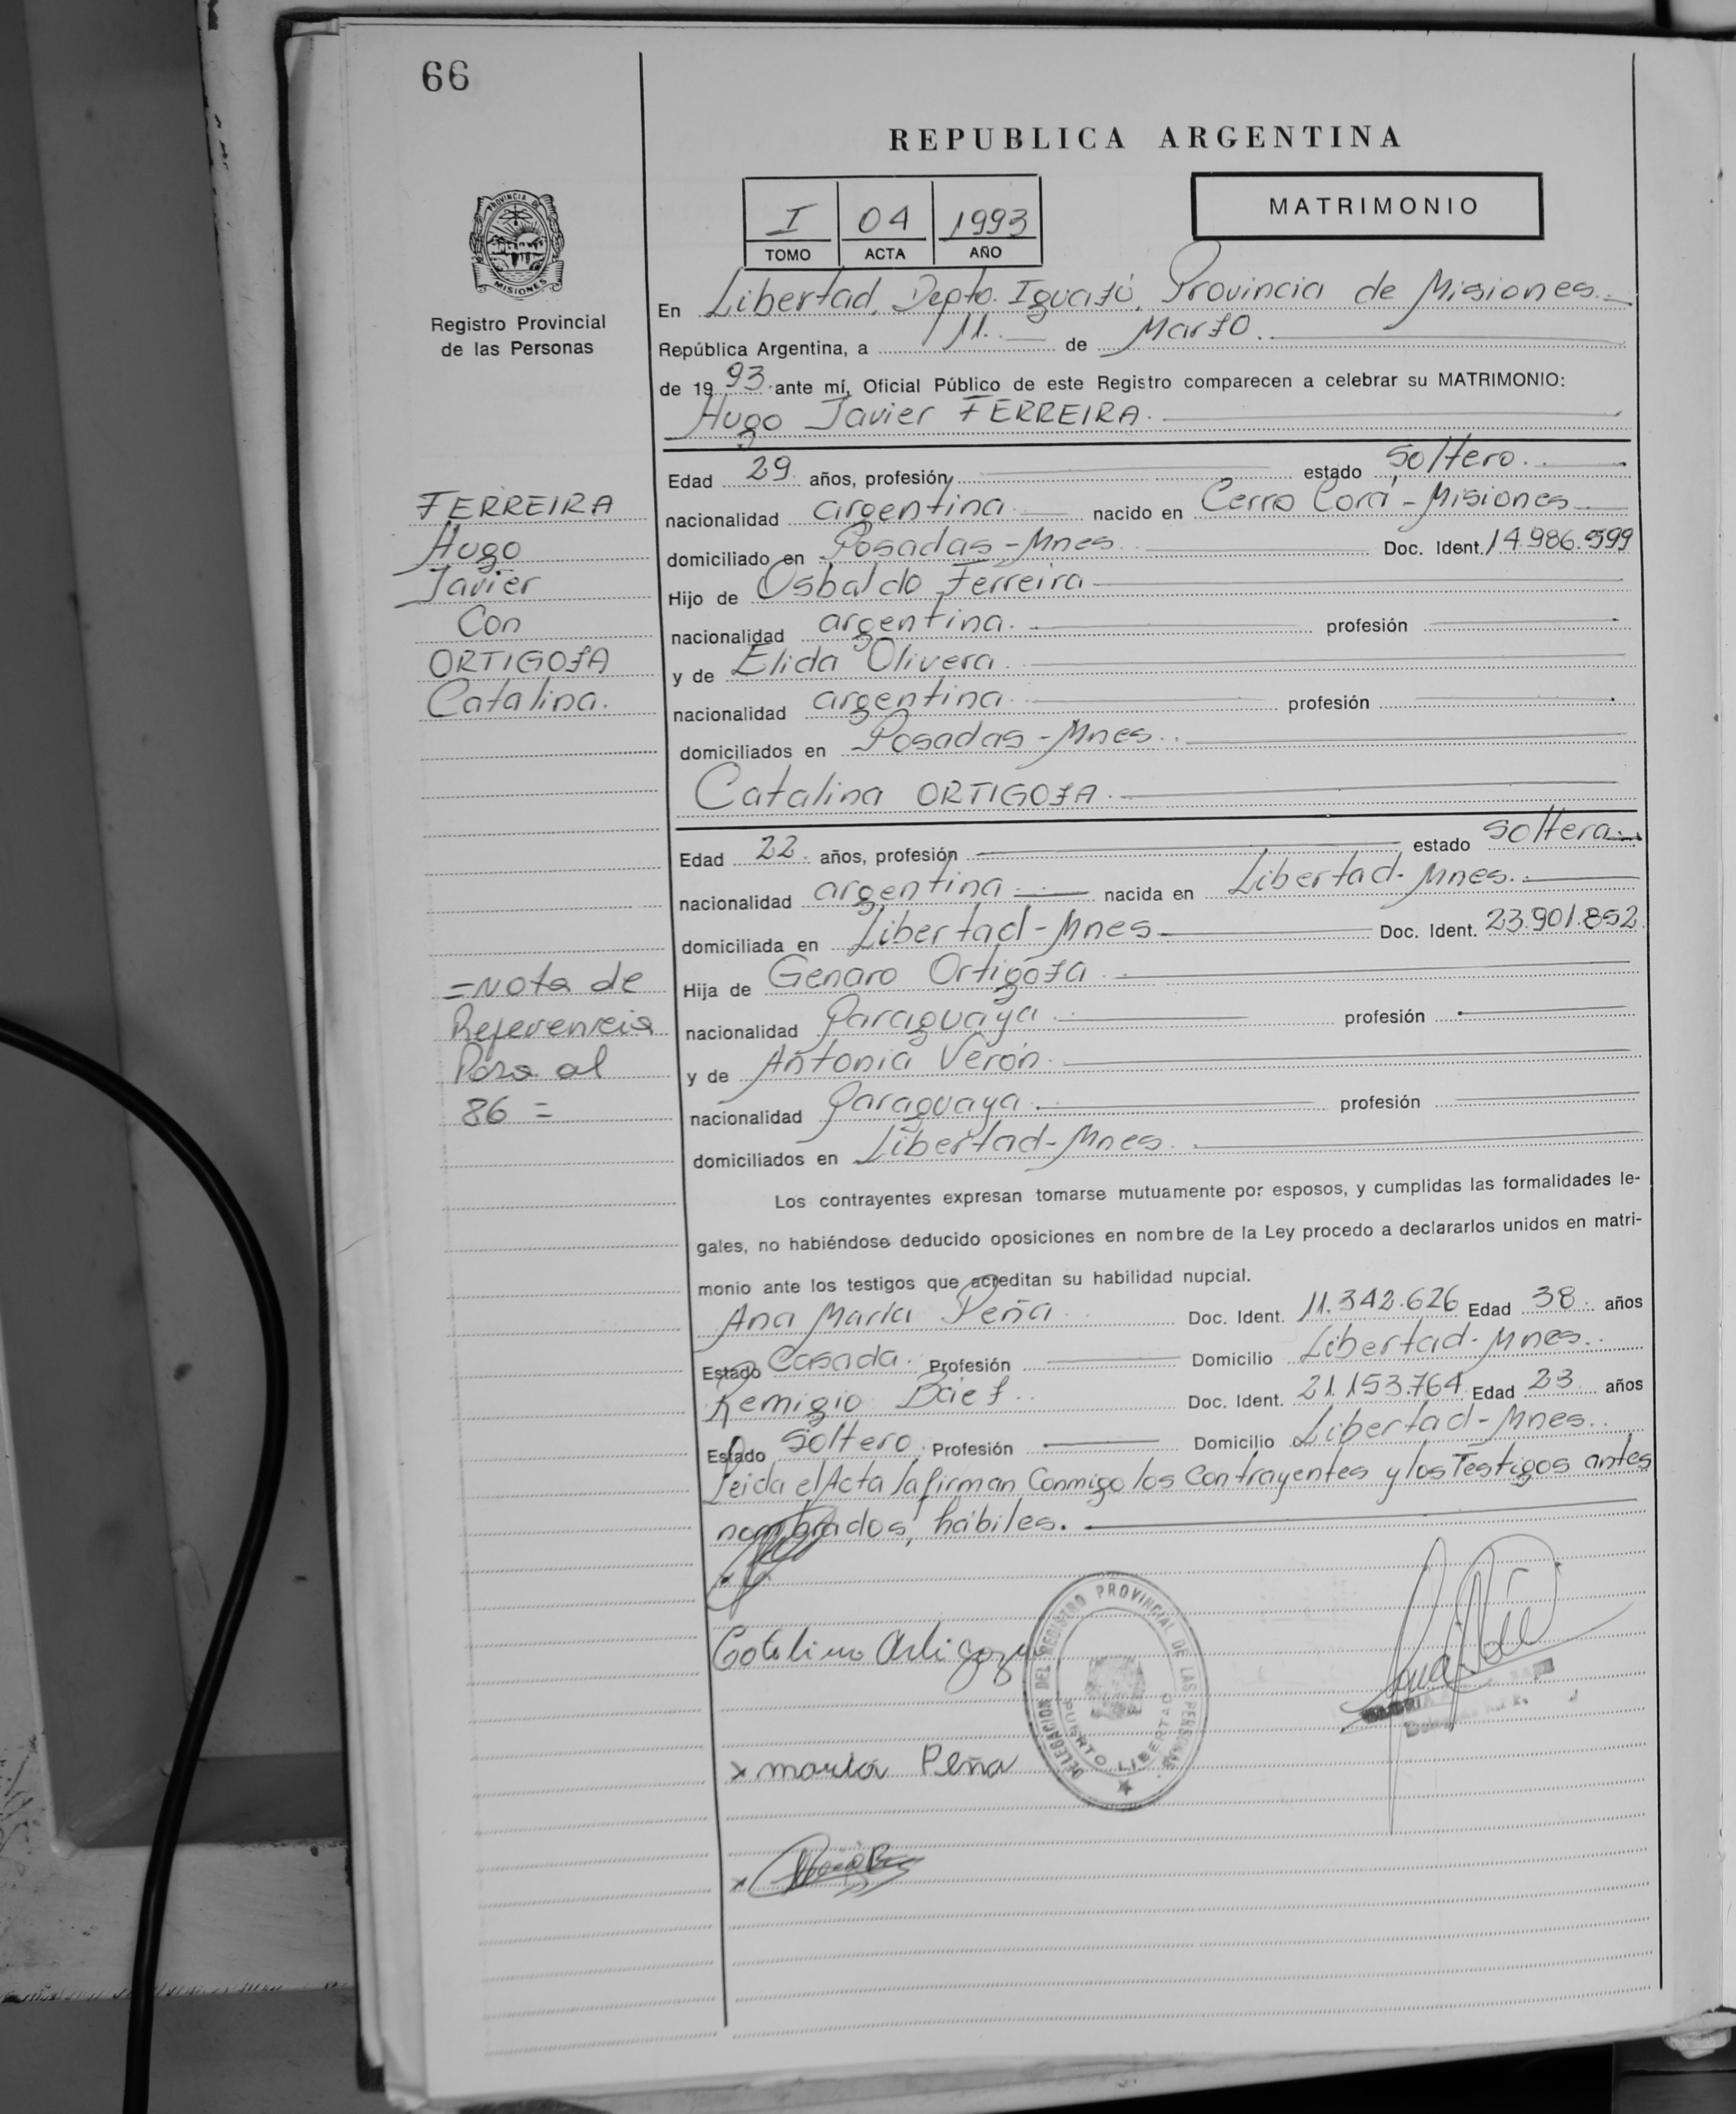 66
REPUBLICA ARGENTINA
PROVINCIA DE
MISIONES
Registro Provincial
de las Personas
I 04 1993
TOMO ACTA AÑO
MATRIMONIO
En Libertad, Depto. Iguazú, Provincia de Misiones
República Argentina, a 11 de Marzo
de 1993 ante mí, Oficial Público de este Registro comparecen a celebrar su MATRIMONIO:
Hugo Javier FERREIRA
Edad 29 años, profesión estado soltero
nacionalidad argentina nacido en Cerro Corá - Misiones
domiciliado en Posadas - Mnes Doc. Ident. 14.986.599
Hijo de Osbaldo Ferreira
nacionalidad argentina profesión
y de Elida Olivera
nacionalidad argentina profesión
domiciliados en Posadas - Mnes
Catalina ORTIGOZA
Edad 22 años, profesión estado soltera
nacionalidad argentina nacida en Libertad - Mnes
domiciliada en Libertad - Mnes Doc. Ident. 23.901.852
Hija de Genaro Ortigoza
nacionalidad Paraguaya profesión
y de Antonia Verón
nacionalidad Paraguaya profesión
domiciliados en Libertad - Mnes
Los contrayentes expresan tomarse mutuamente por esposos, y cumplidas las formalidades le-
gales, no habiéndose deducido oposiciones en nombre de la Ley procedo a declararlos unidos en matri-
monio ante los testigos que acreditan su habilidad nupcial.
Ana María Peña Doc. Ident. 11.342.626 Edad 38 años
Estado Casada Profesión Domicilio Libertad - Mnes
Remigio Báez Doc. Ident. 21.153.764 Edad 23 años
Estado Soltero Profesión Domicilio Libertad - Mnes
Leida el Acta la firman Conmigo los Contrayentes y los Testigos antes
nombrados, hábiles.
Catalina Ortigoza
x maria Peña
DELEGACION DEL REGISTRO PROVINCIAL DE LAS PERSONAS
PUERTO LIBERTAD
FERREIRA
Hugo
Javier
Con
ORTIGOZA
Catalina.
= Nota de
Referencia
Pasa al
86 =